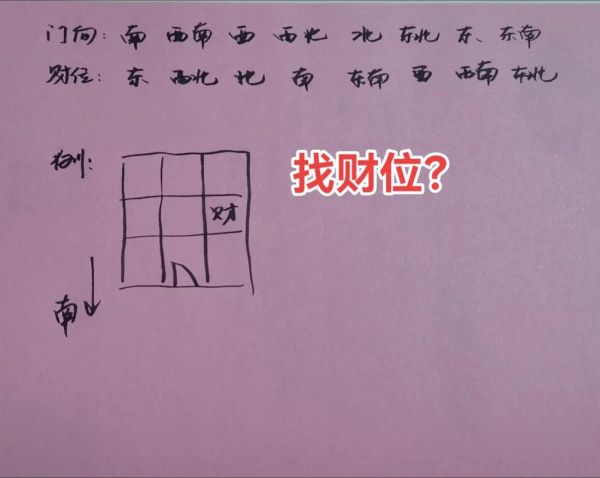 门向: 南 西南 西 西北 北 东北 东、东南
财位: 东、西北 北 南 东南 西 西南 东北
例:
找财位?
财
南